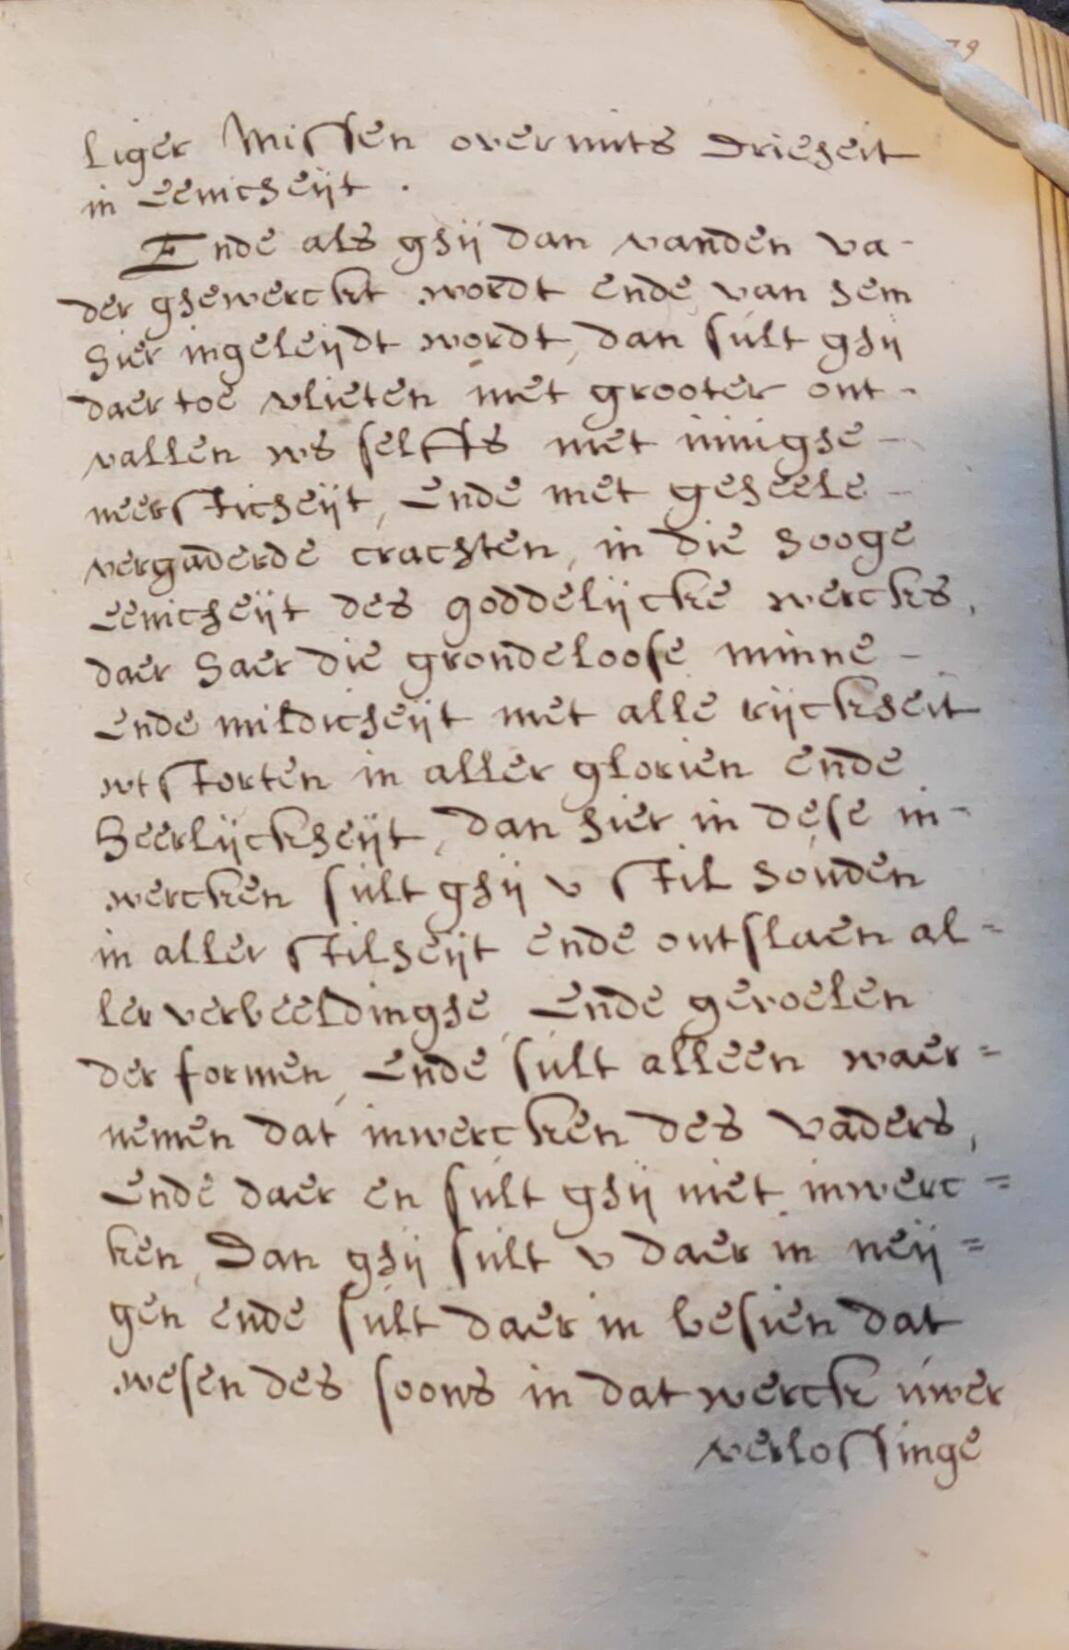 79
liger Missen overmits Drieheit
in Eenicheijt .
Ende als ghij dan vanden va-
der ghewerckt wordt ende van hem
hier ingeleijdt wordt, dan sult ghij
daer toe vlieten met grooter ont-
vallen ws selffs met innighe-
neersticheijt, Ende met geheele-
vergaderde crachten, in die hooge
Eenicheijt des goddelijcke wercks,
daer haer die grondeloose minne-
Ende mildicheijt met alle rijckheit
wtstorten in aller glorien ende
heerlijckheijt, dan hier in dese in-
wercken sult ghij v stil houden
in aller stilheijt ende ontslaen al=
ler verbeeldinghe, Ende gevoelen
der formen, Ende sult alleen waer=
nemen dat inwercken des vaders,
Ende daer en sult ghij niet inwerc=
ken, Dan ghij sult v daer in neij=
gen ende sult daer in besien dat
wesen des soons in dat werck uwer
verlossinge